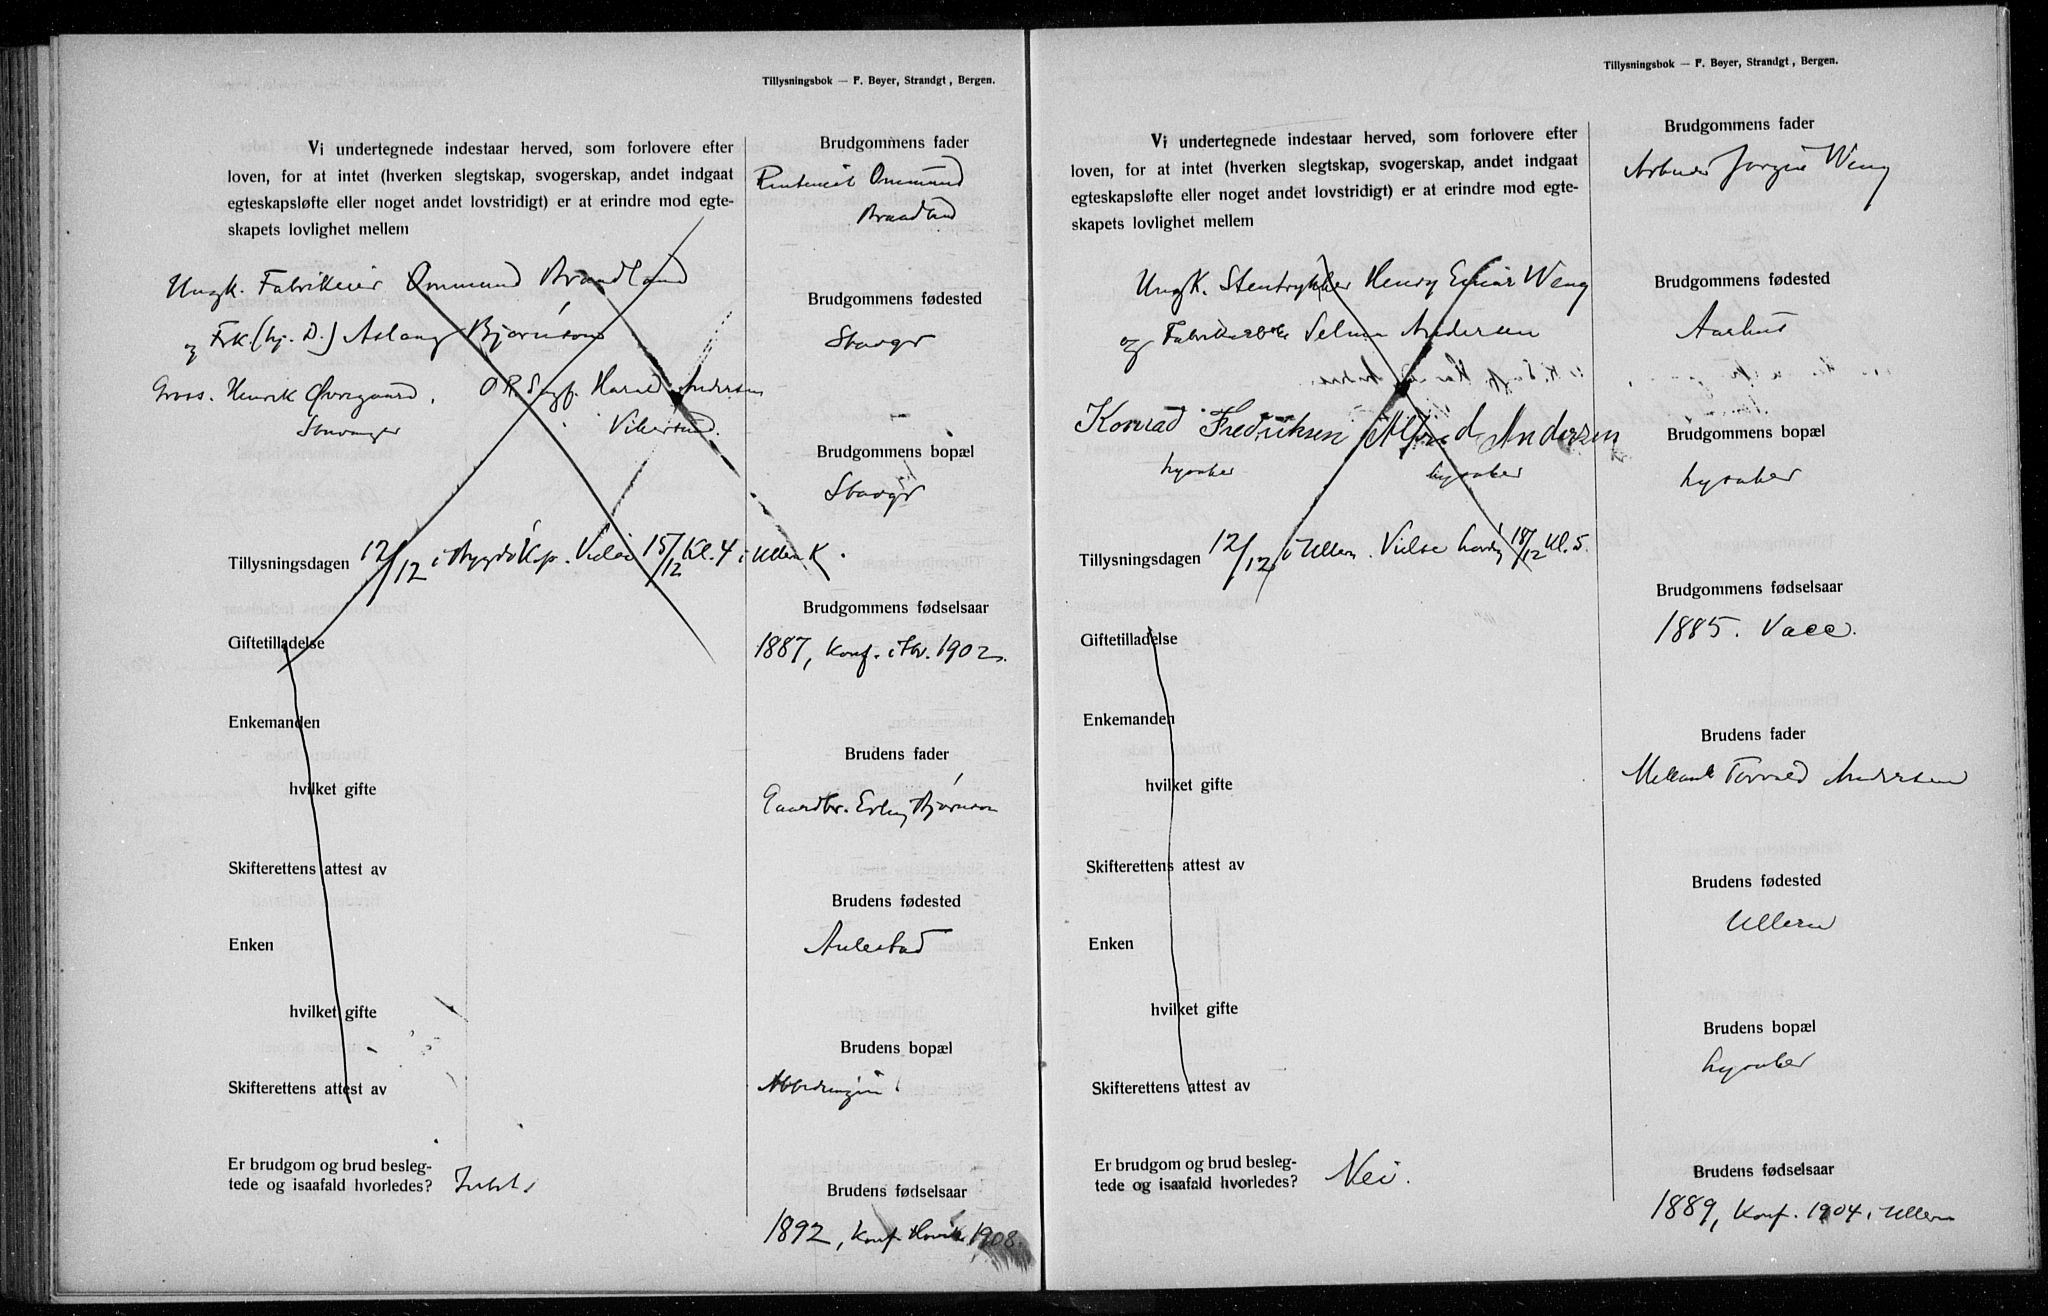 Tillysningsbok — F. Bøyer, Strandgt, Bergen.
Vi undertegnede indestaar herved, som forlovere efter
loven, for at intet (hverken slegtskap, svogerskap, andet indgaat
egteskapsløfte eller noget andet lovstridigt) er at erindre mod egte-
skapets lovlighet mellem
Ungk. Fabrikeier Ommund Braadland
og Frk. (hj. D.) Aslaug Bjørnson
Gross. Henrik Øvregaard, O.R.Sagf. Harald Andersen
Stavanger Vikersund.
Tillysningsdagen 12/12 i Bygdø Kp. Vielse 15/12 Kl. 4 i Ullern K.
Giftetilladelse
Enkemanden
hvilket gifte
Skifterettens attest av
Enken
hvilket gifte
Skifterettens attest av
Er brudgom og brud besleg-
tede og isaafald hvorledes?
Brudgommens fader
Ommund
Braadland
Brudgommens fødested
Stavgr
Brudgommens bopæl
Stavgr
Brudgommens fødselsaar
1887, Konf. 1902.
Brudens fader
Gaardbr. Erling Bjørnson
Brudens fødested
Aulestad
Brudens bopæl
Brudens fødselsaar
1892, Konf. Høvik 1908.
Tillysningsbok — F. Bøyer, Strandgt, Bergen.
Vi undertegnede indestaar herved, som forlovere efter
loven, for at intet (hverken slegtskap, svogerskap, andet indgaat
egteskapsløfte eller noget andet lovstridigt) er at erindre mod egte-
skapets lovlighet mellem
Ungk. Stentrykker Henry Einar Weng
og Fabrikarb. Selma Andersen
Konrad Fredriksen Alfred Andersen
Lysaker Lysaker
Tillysningsdagen 12/12 i Ullern. Vielse Lørdag 18/12 Kl. 5.
Giftetilladelse
Enkemanden
hvilket gifte
Skifterettens attest av
Enken
hvilket gifte
Skifterettens attest av
Er brudgom og brud besleg-
tede og isaafald hvorledes? Nei.
Brudgommens fader
Arbeider Jørgen Weng
Brudgommens fødested
Aarhus
Brudgommens bopæl
Lysaker
Brudgommens fødselsaar
1885. Vacc.
Brudens fader
Andersen
Brudens fødested
Ullern
Brudens bopæl
Lysaker
Brudens fødselsaar
1889, Konf. 1904 i Ullern